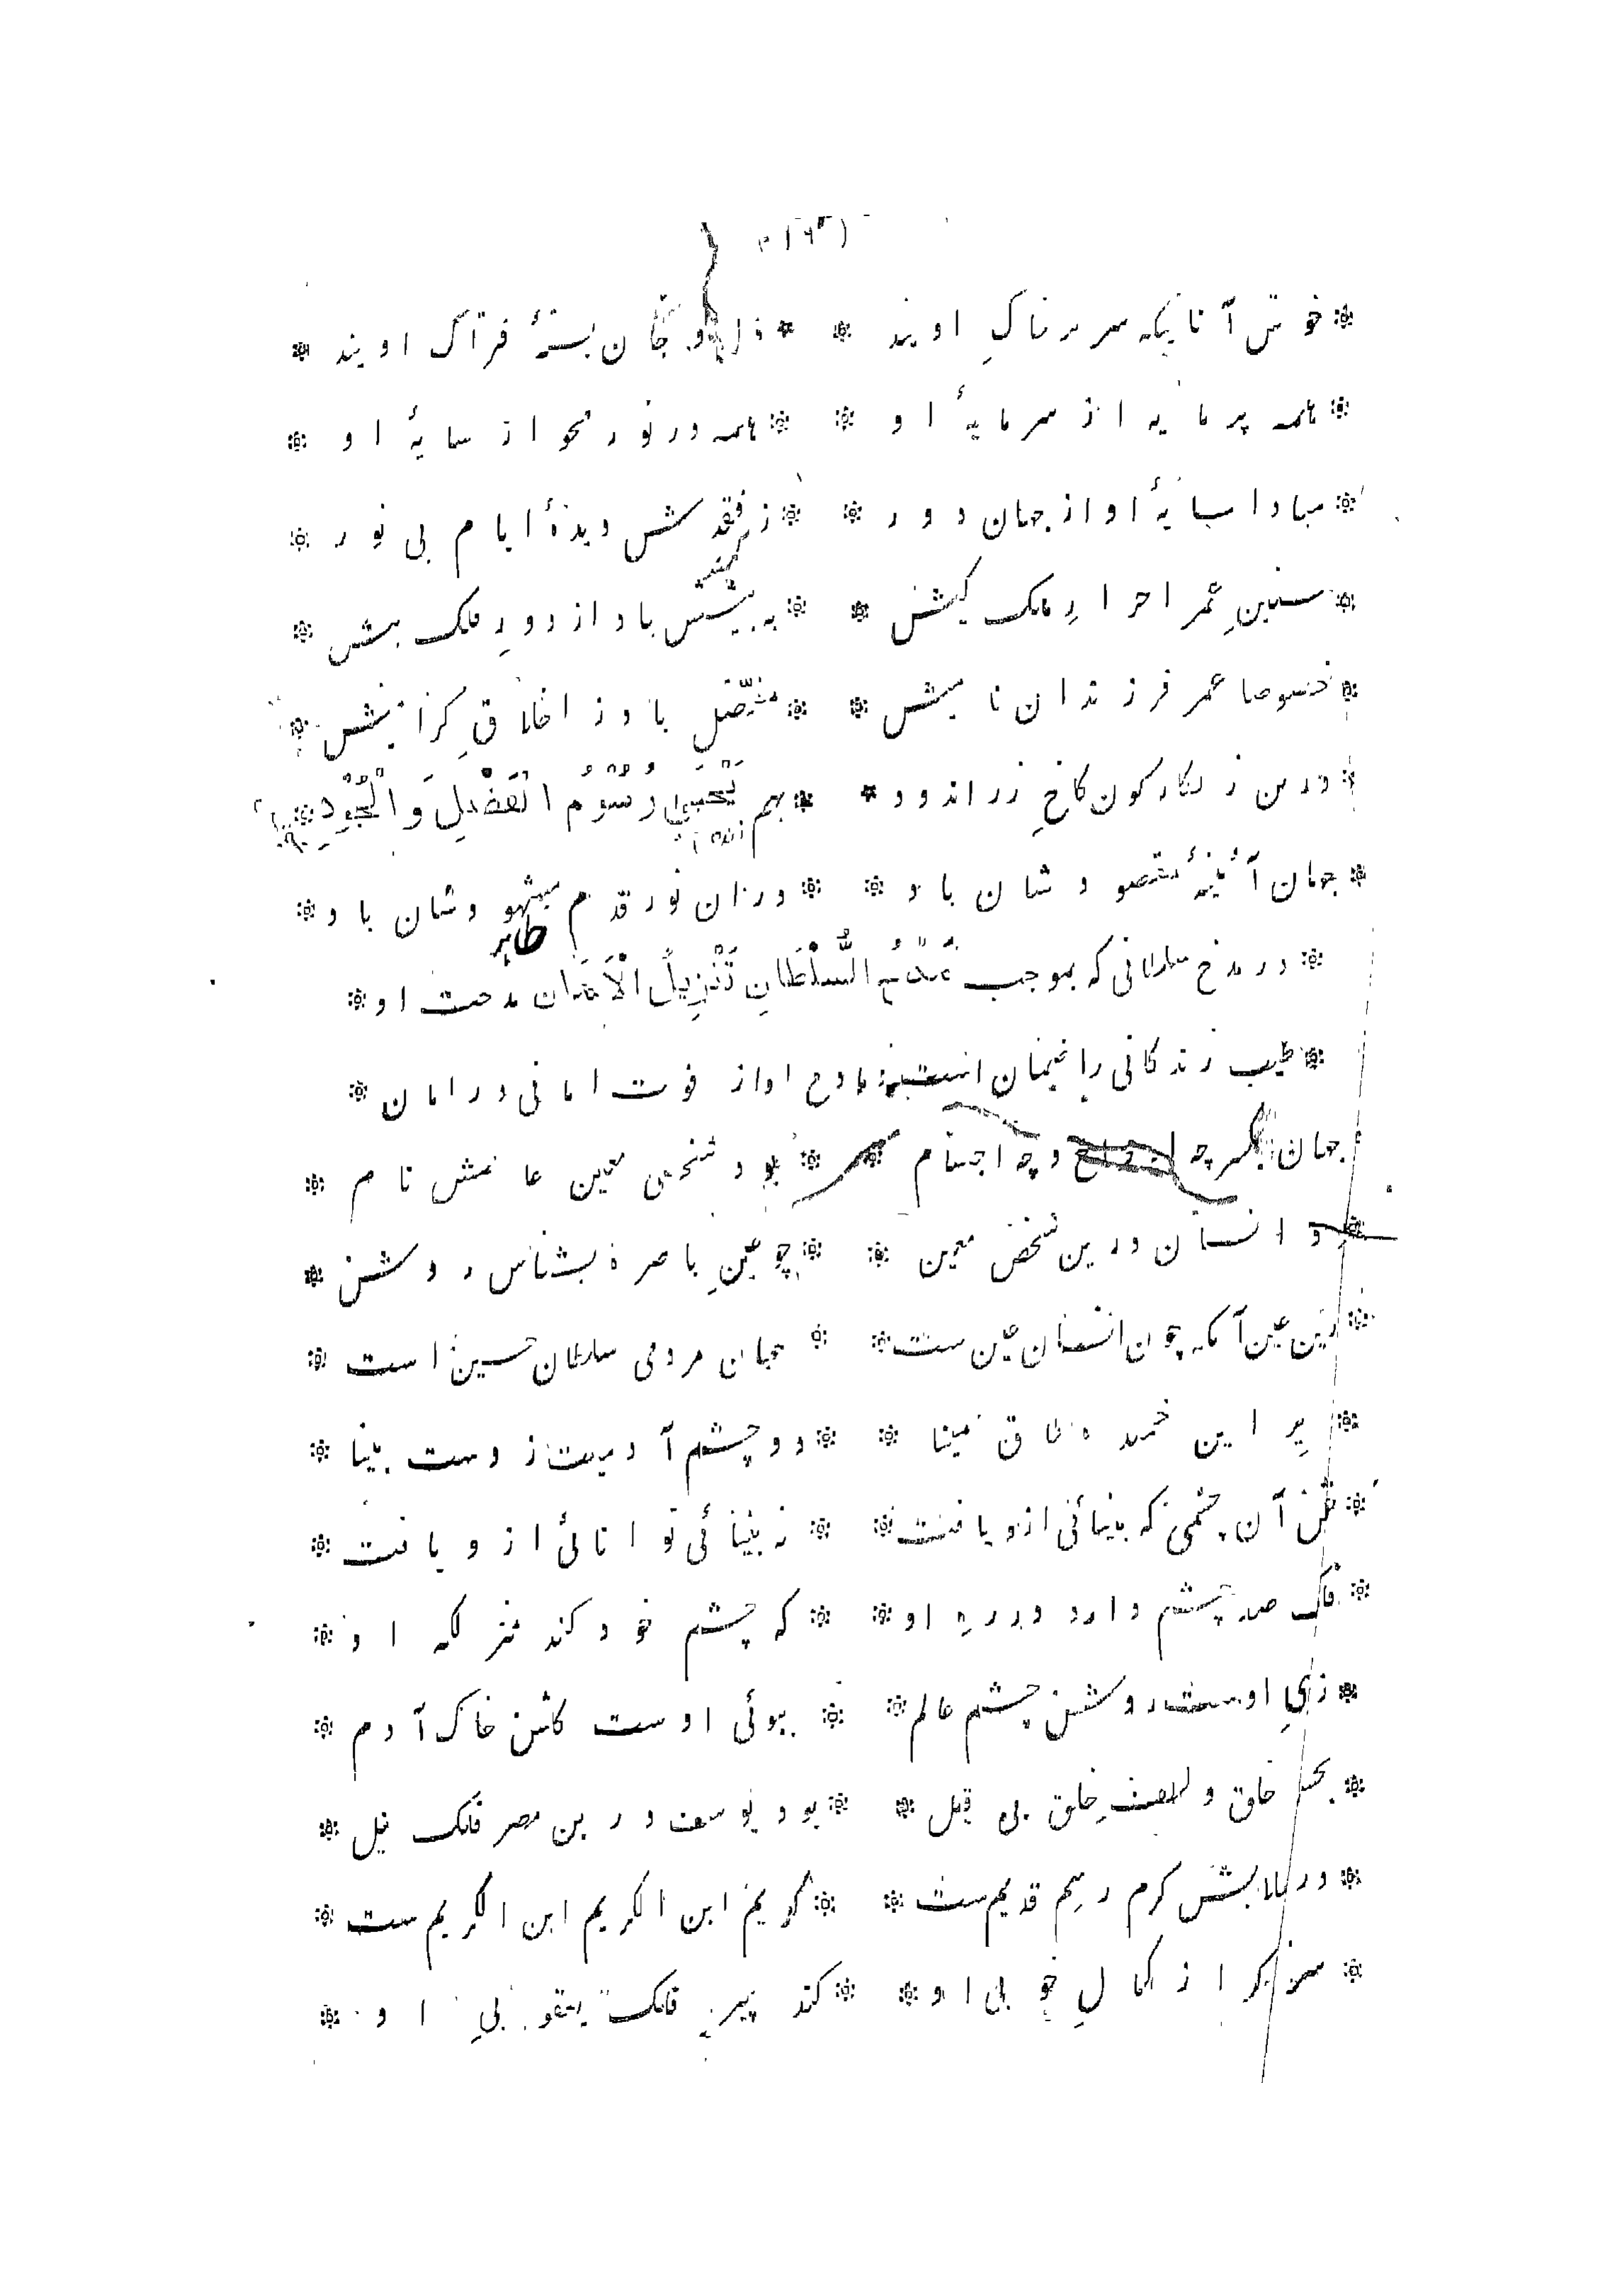 خوش آنانیکه سر بر خاکِ اویند * دل و جان بستهٔ فتراک اویند
همه پر مایه از سرمایهٔ او * همه در نور محو از سایهٔ او
مبادا سایهٔ او از جهان دور * ز فقدش دیدهٔ ایام بی نور
سنینِ عمر احرارِ ملک کیش * به پیشش باد از دورِ فلک بیش
خصوصا عمر فرزندان نامیش * باد ز اخلاقِ گرامیش
درین زنگارگون کاخِ زر اندود * بهم یُحْیِی رُسُوْمُ الْفَضْلِ وَالْجُوْدِ
جهان آئینهٔ مقصود شان باد * در آن نور قدم مشهود شان باد
در مدح سلطانی که بموجب السُّلْطَانِ تَنْزِیلُ الْاَمَان مدحت او
طیب زندگانی را ضمان است مادح او از فوت امانی در امان
جهان یکسر چه ارواح و چه اجسام * بود شخصی معین عالمش نام
بود انسان درین شخص معین * چو عینِ باصره بشناس روشن
درین عین آنکه چون انسان عین ست * جهان مردمی سلطان حسین است
پر این خمیده طاق مینا * دو چشم آدمیت زوست بینا
نه آن چشمی که بینائی ازو یافت * نه بینائی توانائی ازو یافت
فلک صد چشم دارد در رهِ او * که چشم خود کند منزلگه او
ز اوست روشن چشم عالم * ببوئی اوست گلشن خاک آدم
بحسن خلق و لطفِ خلق بی قیل * بود یوسف درین مصر فلک نیل
در بابش کرم رسم قدیم ست * کریم ابن الکریم ابن الکریم ست
سزد گر از کمالِ خوبی او * کند پیر فلک یعقوبیِ او